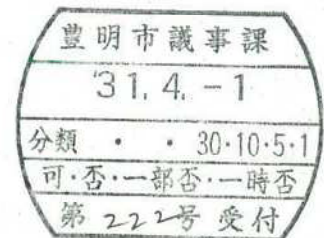 豊明市議事課
'31.4.-1
分類 ・ ・ 30・10・5・1
可・否・一部否・一時否
第222号 受付